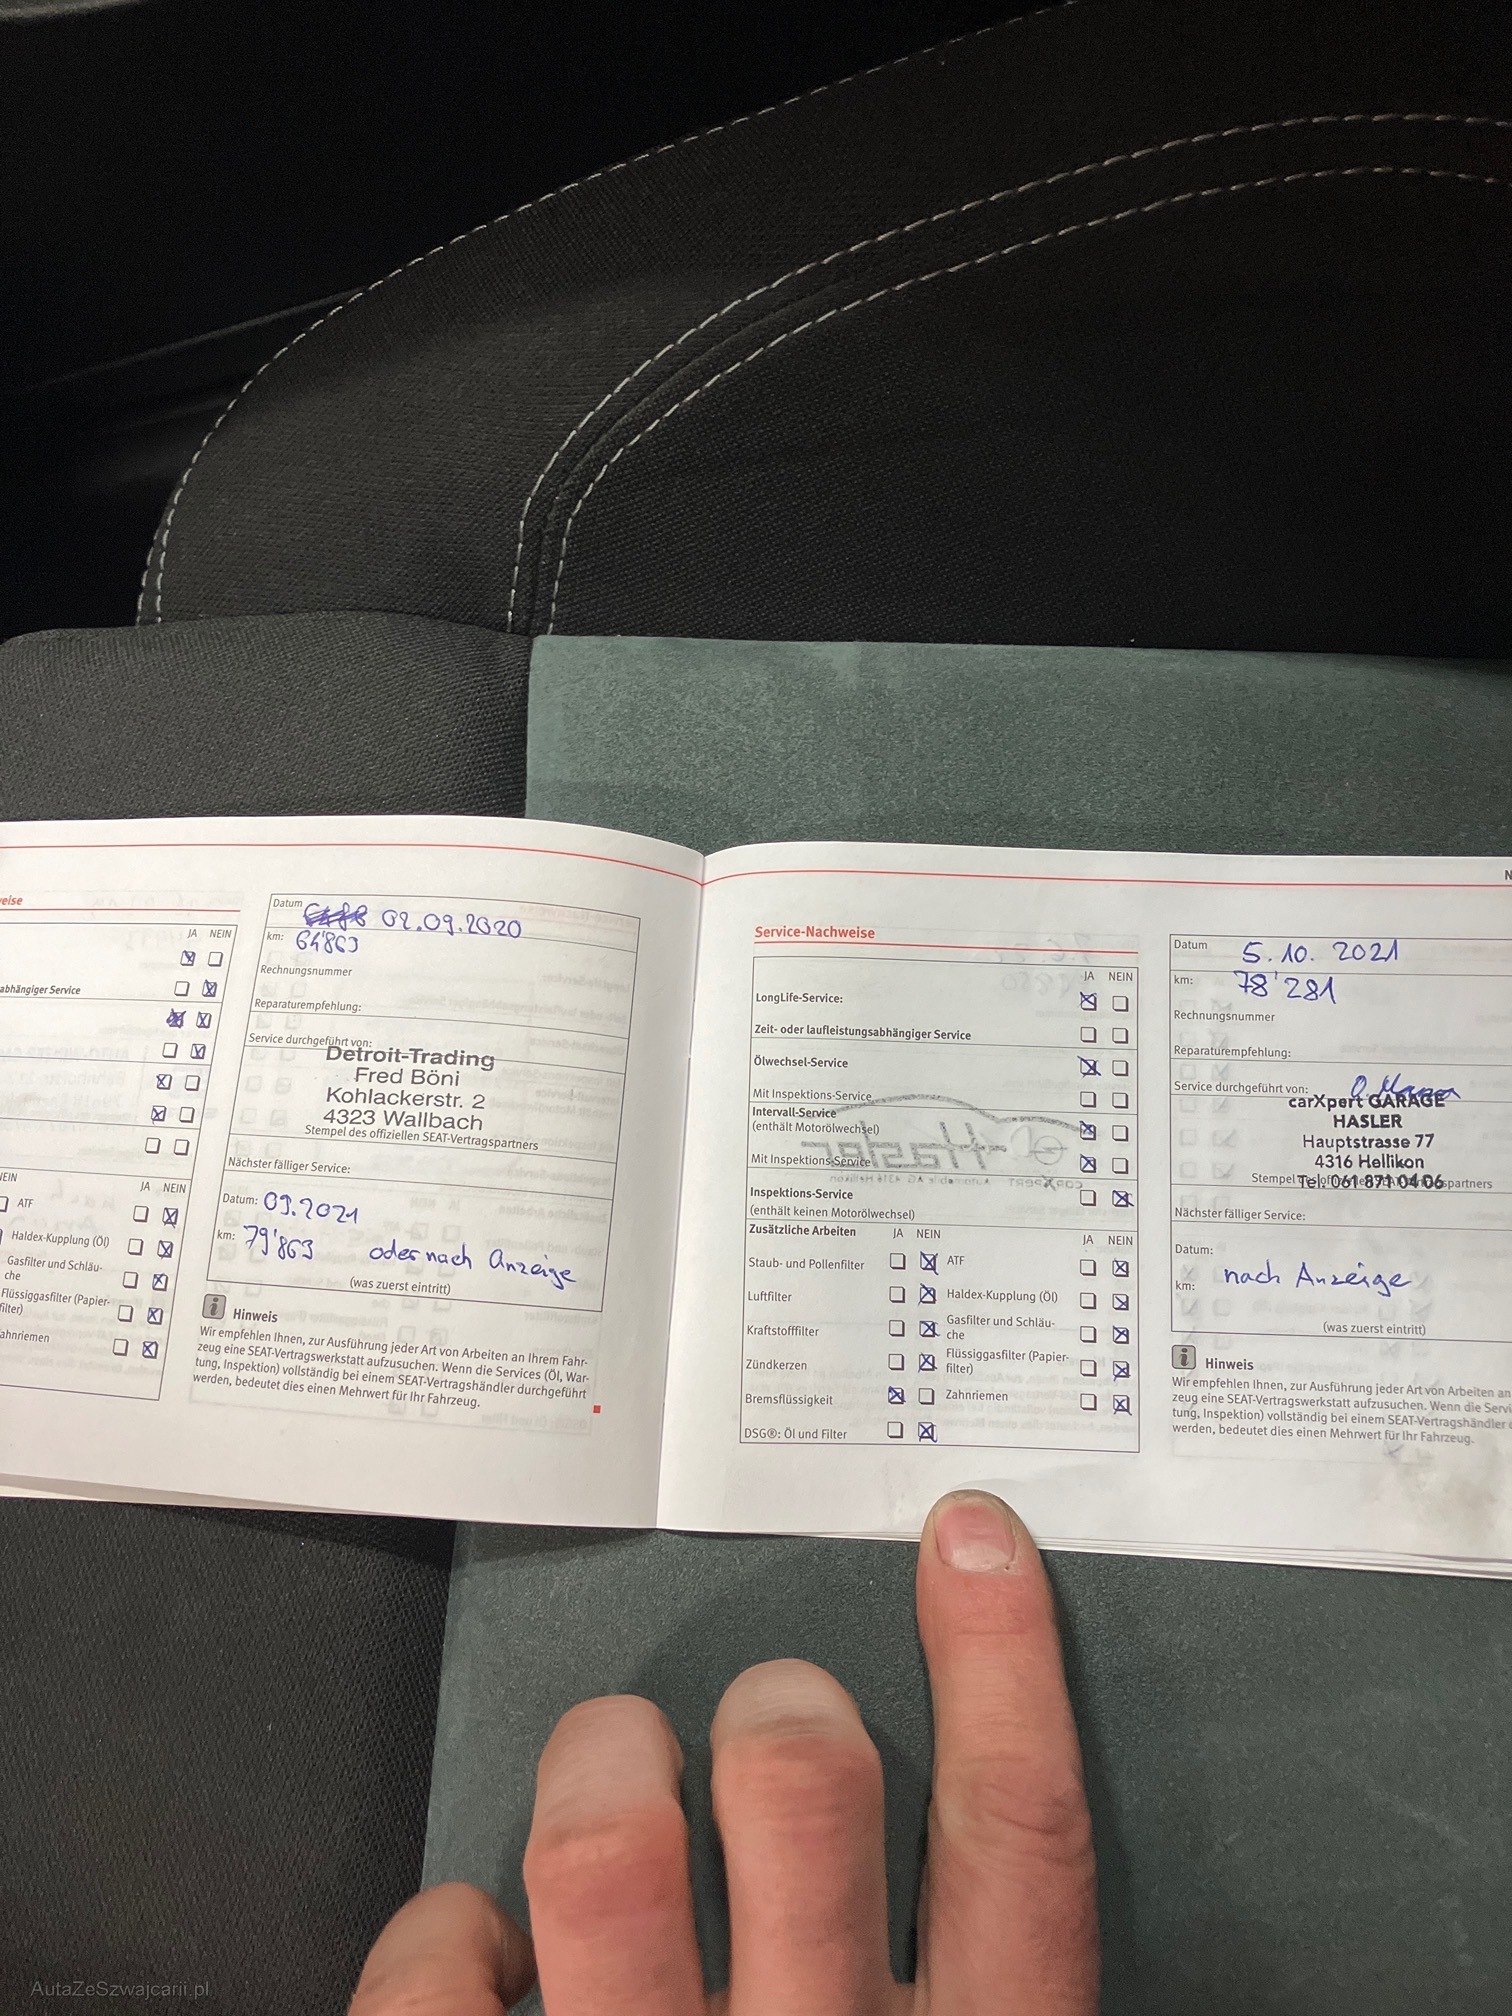 eise
JA NEIN
abhängiger Service
JA NEIN
NEIN
ATF
Haldex-Kupplung (Öl)
Gasfilter und Schläu-
che
Flüssiggasfilter (Papier-
filter)
ahnriemen
Datum 02.09.2020
km: 64'863
Rechnungsnummer
Reparaturempfehlung:
Service durchgeführt von:
Detroit-Trading
Fred Böni
Kohlackerstr. 2
4323 Wallbach
Stempel des offiziellen SEAT-Vertragspartners
Nächster fälliger Service:
Datum: 09.2021
km: 79'863 oder nach Anzeige
(was zuerst eintritt)
i Hinweis
Wir empfehlen Ihnen, zur Ausführung jeder Art von Arbeiten an Ihrem Fahr-
zeug eine SEAT-Vertragswerkstatt aufzusuchen. Wenn die Services (Öl, War-
tung, Inspektion) vollständig bei einem SEAT-Vertragshändler durchgeführt
werden, bedeutet dies einen Mehrwert für Ihr Fahrzeug.
N
Service-Nachweise
JA NEIN
LongLife-Service:
Zeit- oder laufleistungsabhängiger Service
Ölwechsel-Service
Mit Inspektions-Service
Intervall-Service
(enthält Motorölwechsel)
Mit Inspektions-Service
Inspektions-Service
(enthält keinen Motorölwechsel)
Zusätzliche Arbeiten JA NEIN JA NEIN
Staub- und Pollenfilter ATF
Luftfilter Haldex-Kupplung (Öl)
Kraftstofffilter Gasfilter und Schläu-
che
Zündkerzen Flüssiggasfilter (Papier-
filter)
Bremsflüssigkeit Zahnriemen
DSG®: Öl und Filter
Datum 5.10.2021
km: 78'281
Rechnungsnummer
Reparaturempfehlung:
Service durchgeführt von:
carXpert GARAGE
HASLER
Hauptstrasse 77
4316 Hellikon
Stempel
Tel. 061 871 04 06
spartners
Nächster fälliger Service:
Datum:
km: nach Anzeige
(was zuerst eintritt)
i Hinweis
Wir empfehlen Ihnen, zur Ausführung jeder Art von Arbeiten an
zeug eine SEAT-Vertragswerkstatt aufzusuchen. Wenn die Servi
tung, Inspektion) vollständig bei einem SEAT-Vertragshändler
werden, bedeutet dies einen Mehrwert für Ihr Fahrzeug.
AutaZeSzwajcarii.pl